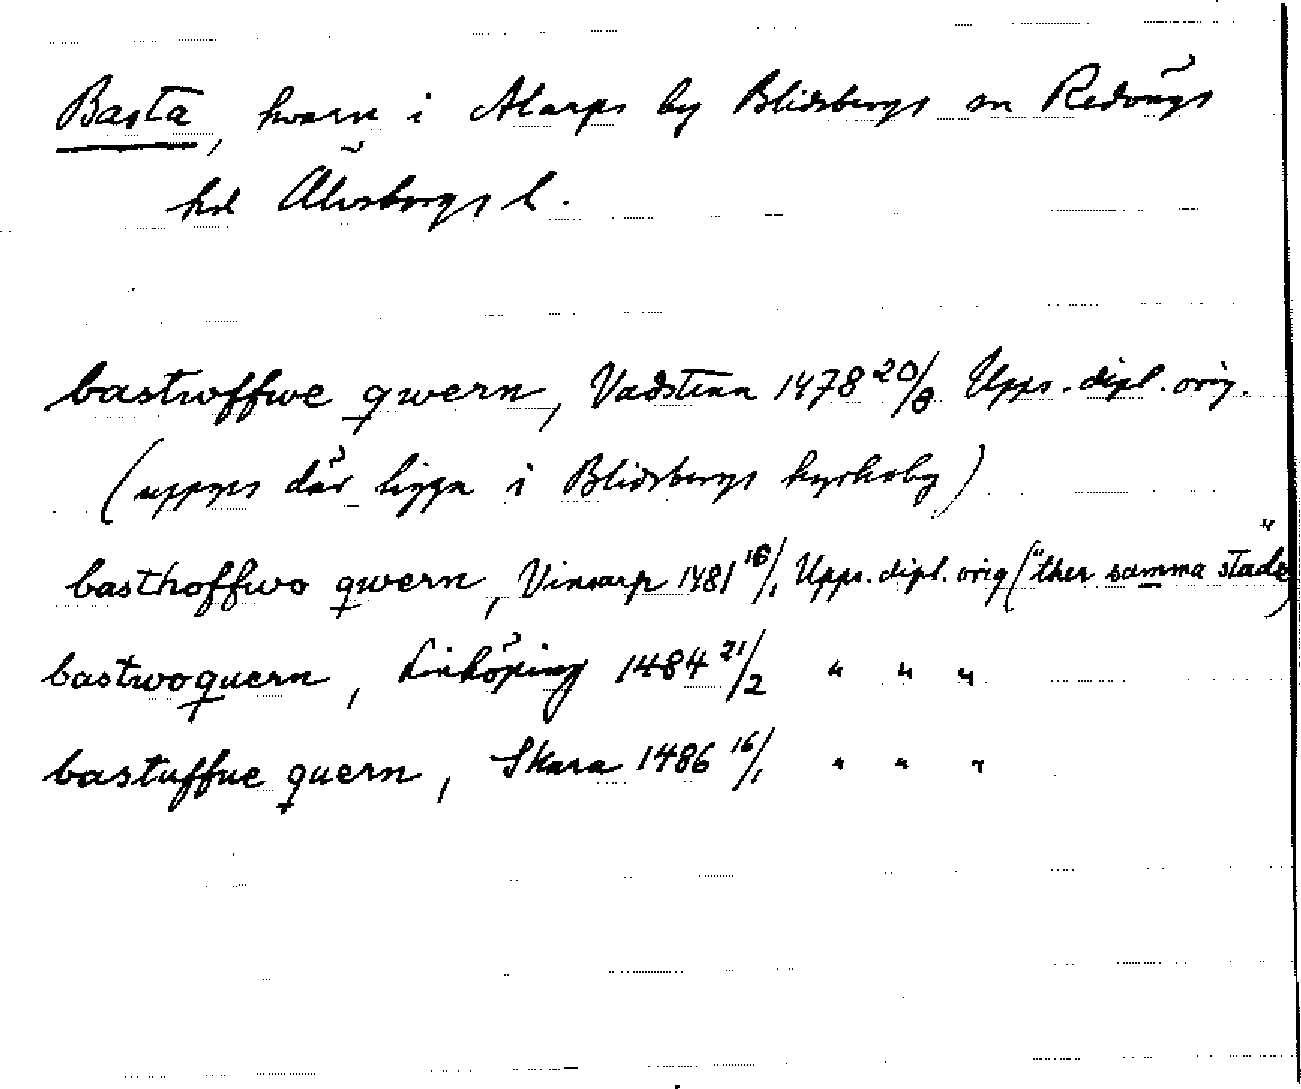 Basta, kvarn i Alarps by Blidsbergs sn Redvägs
hd Älvsborgs l.
bastwoffwe qwern, Vadstena 1478 20/8 Upps. dipl. orig.
(uppges där ligga i Blidsbergs kyrkoby)
basthoffwo qwern, Vinsarp 1481 18/1 Upps. dipl. orig ("ther samma stadz")
bastwoquern, Linköping 1484 21/2 " " "
bastuffue quern, Skara 1486 16/1 " " "